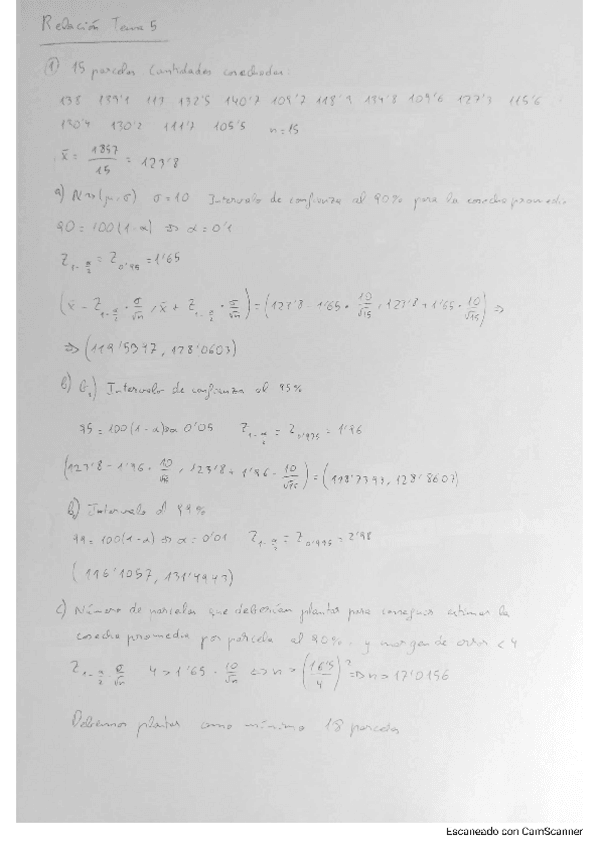 Relación Tema 5
① 15 parcelas Cantidades cosechadas:
138 139'1 113 132'5 140'7 109'7 118'9 134'8 109'6 127'3 115'6
130'4 130'2 111'7 105'5 n=15
x̄ = 1857/15 = 123'8
a) N~(μ,σ) σ=10 Intervalo de confianza al 90% para la cosecha promedio
90 = 100(1-α) ⇔ α=0'1
Z_{1-α/2} = Z_{0'95} = 1'65
(x̄ - Z_{1-α/2} · σ/√n, x̄ + Z_{1-α/2} · σ/√n) = (123'8 - 1'65 · 10/√15, 123'8 + 1'65 · 10/√15) ⇒
⇒ (119'5397, 128'0603)
b) b₁) Intervalo de confianza al 95%
95 = 100(1-α) ⇔ α 0'05 Z_{1-α/2} = Z_{0'975} = 1'96
(123'8 - 1'96 · 10/√15, 123'8 + 1'96 · 10/√15) = (118'7393, 128'8607)
b₂) Intervalo al 99%
99 = 100(1-α) ⇔ α=0'01 Z_{1-α/2} = Z_{0'995} = 2'98
(116'1057, 131'4943)
c) Número de parcelas que deberían plantar para conseguir estimar la
cosecha promedio por parcela al 90% y margen de error < 4
Z_{1-α/2} · σ/√n 4 > 1'65 · 10/√n ⇔ n > (16'5/4)² ⇒ n > 17'0156
Debemos plantar como mínimo 18 parcelas
Escaneado con CamScanner